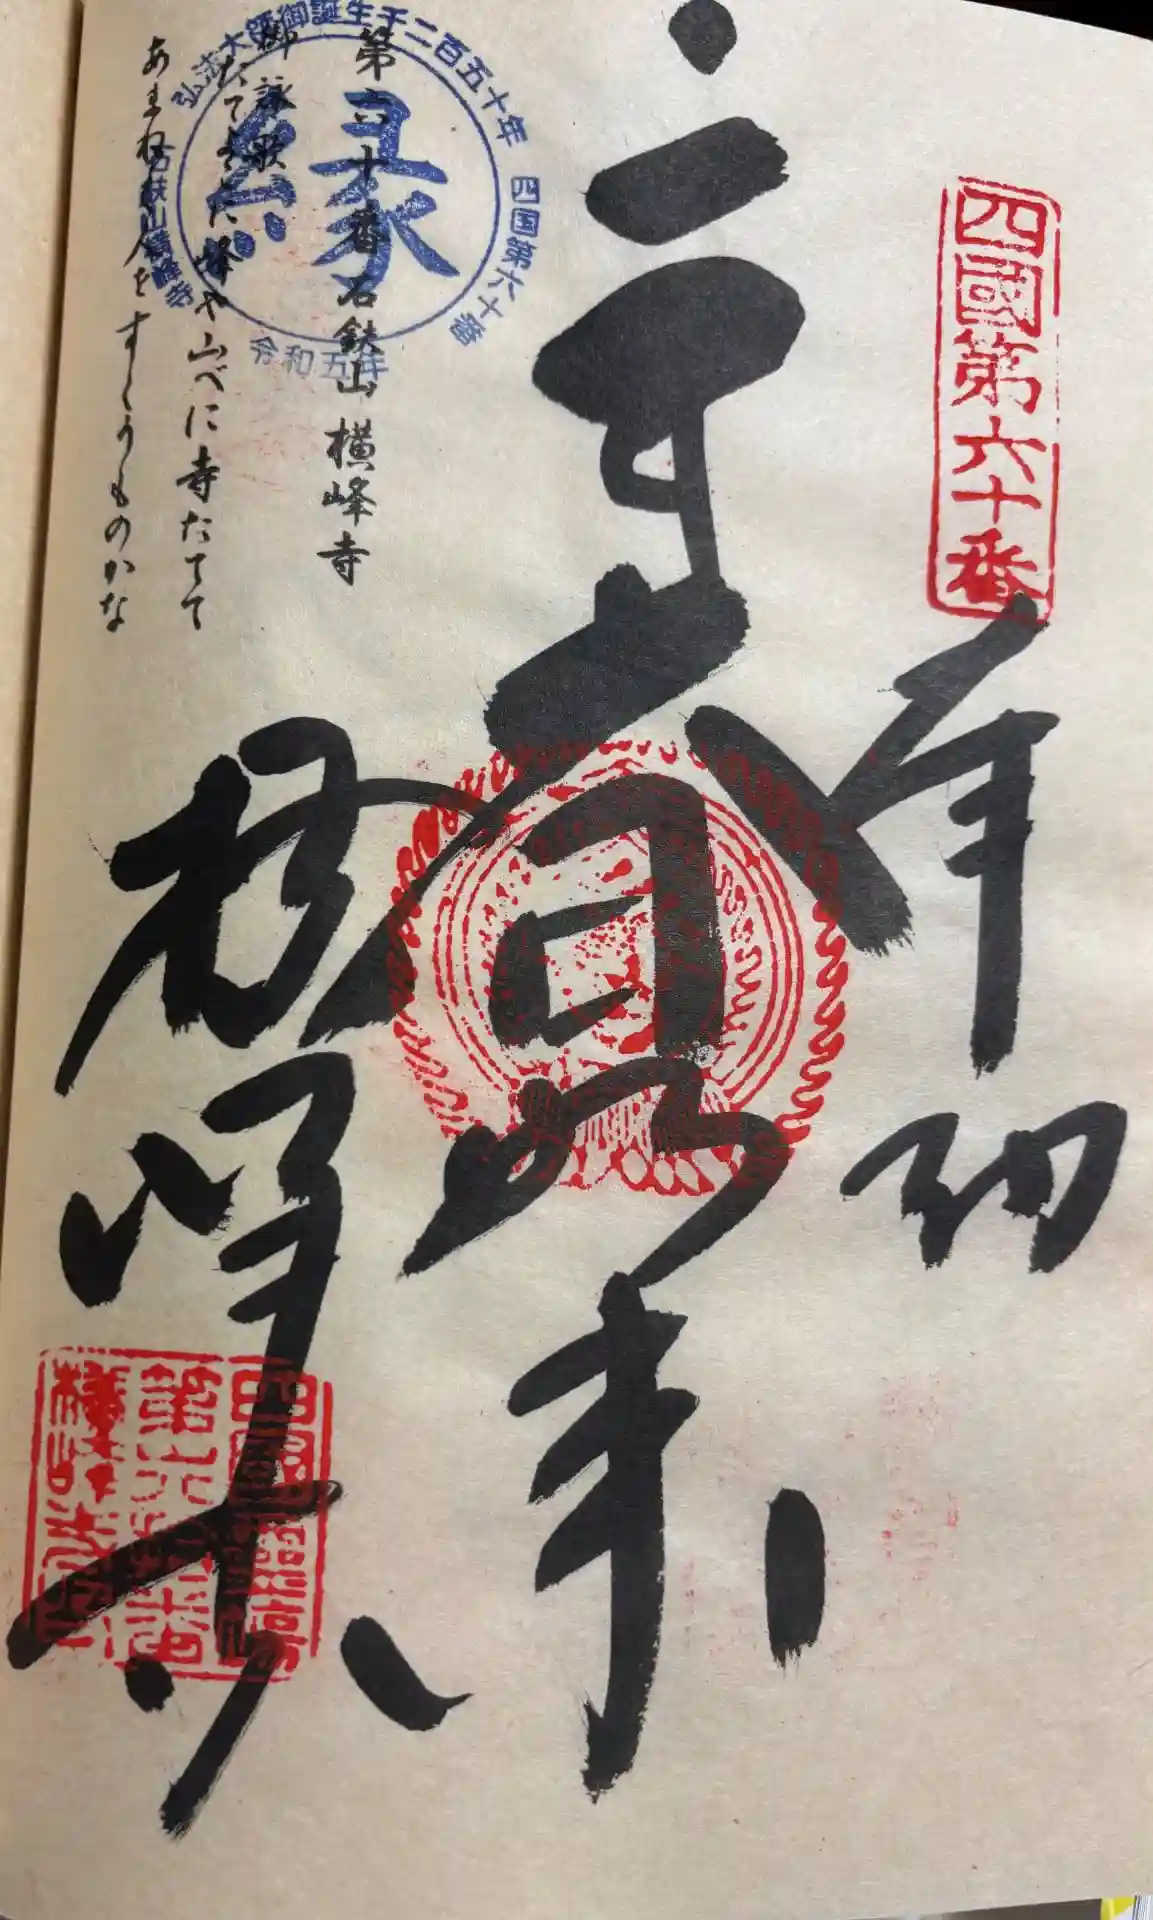 四國第六十番
奉納
大日如来
横峰寺
第六十番石鈇山横峰寺
御詠歌
たてよこに峰や山べに寺たてて
あまねく人をすくうものかな
弘法大師御誕生千二百五十年
四国第六十番
石鈇山横峰寺
令和五年